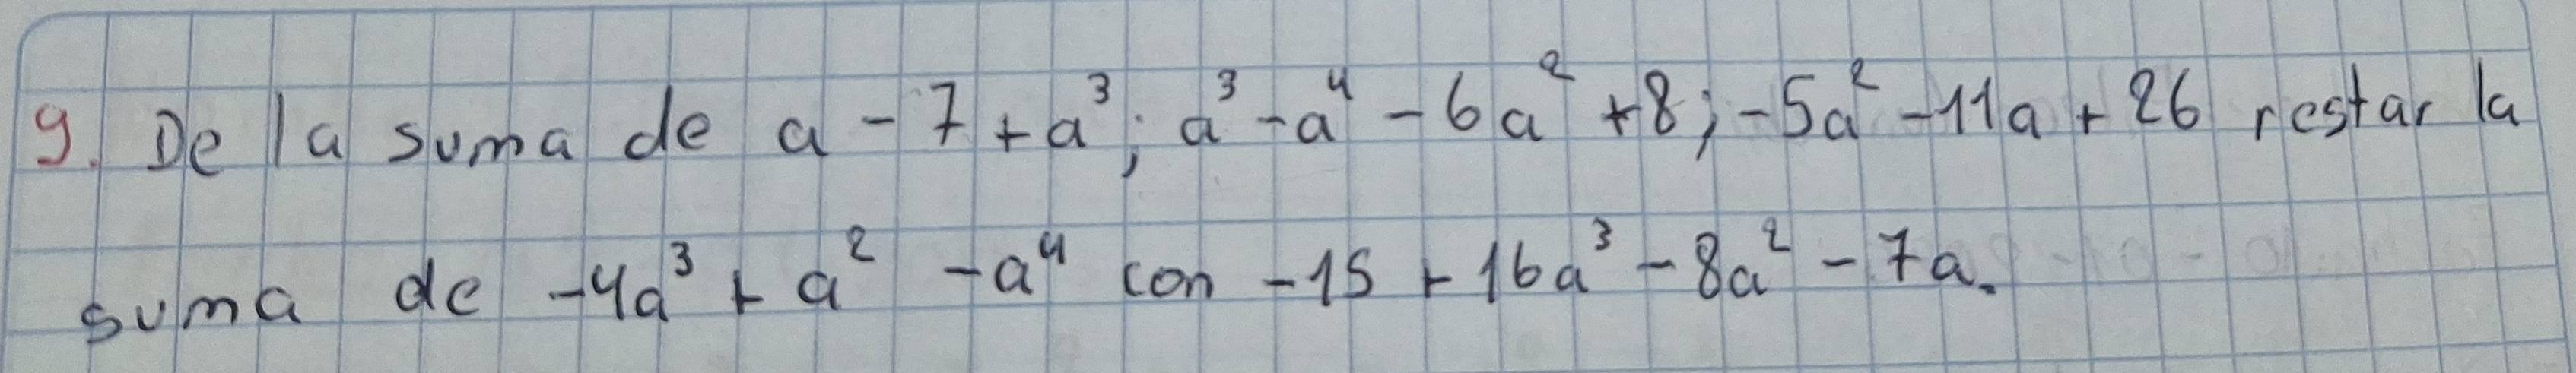 9. De la suma de a - 7 + a³; a³ - a⁴ - 6a² + 8; -5a² - 11a + 26 restar la
suma de -4a³ + a² - a⁴ con -15 + 16a³ - 8a² - 7a.